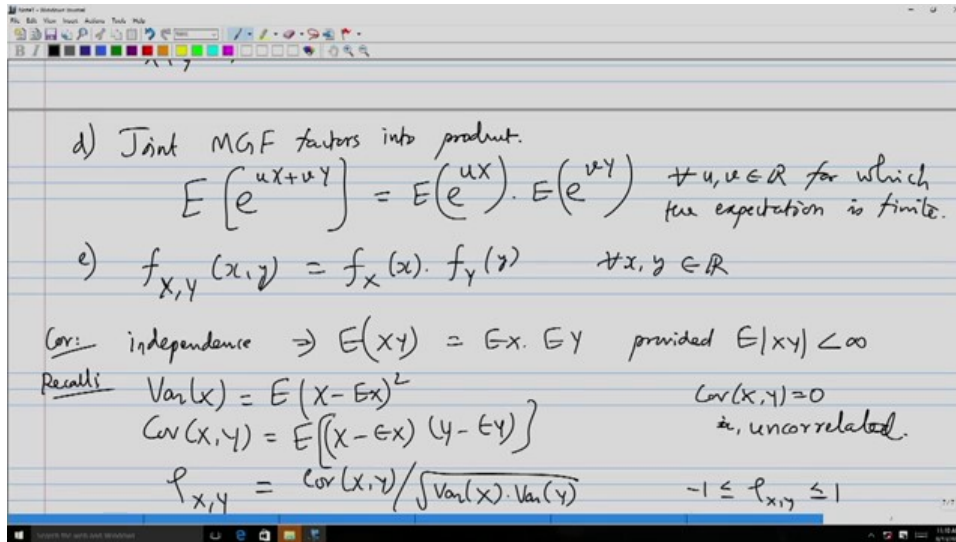 Note1 - Windows Journal
File Edit View Insert Actions Tools Help
B I
X,Y
d) Joint MGF factors into product.
E[e^{uX+vY}] = E(e^{uX}). E(e^{vY}) ∀ u,v ∈ R for which
the expectation is finite.
e) f_{X,Y}(x,y) = f_X(x). f_Y(y) ∀x, y ∈ R
Cor: independence ⇒ E(XY) = EX. EY provided E|XY| < ∞
Recall: Var(X) = E(X-EX)² Cov(X,Y)=0
Cov(X,Y) = E[(X-EX)(Y-EY)] is, uncorrelated.
ρ_{X,Y} = Cov(X,Y)/√Var(X).Var(Y) -1 ≤ ρ_{X,Y} ≤ 1
Search the web and Windows